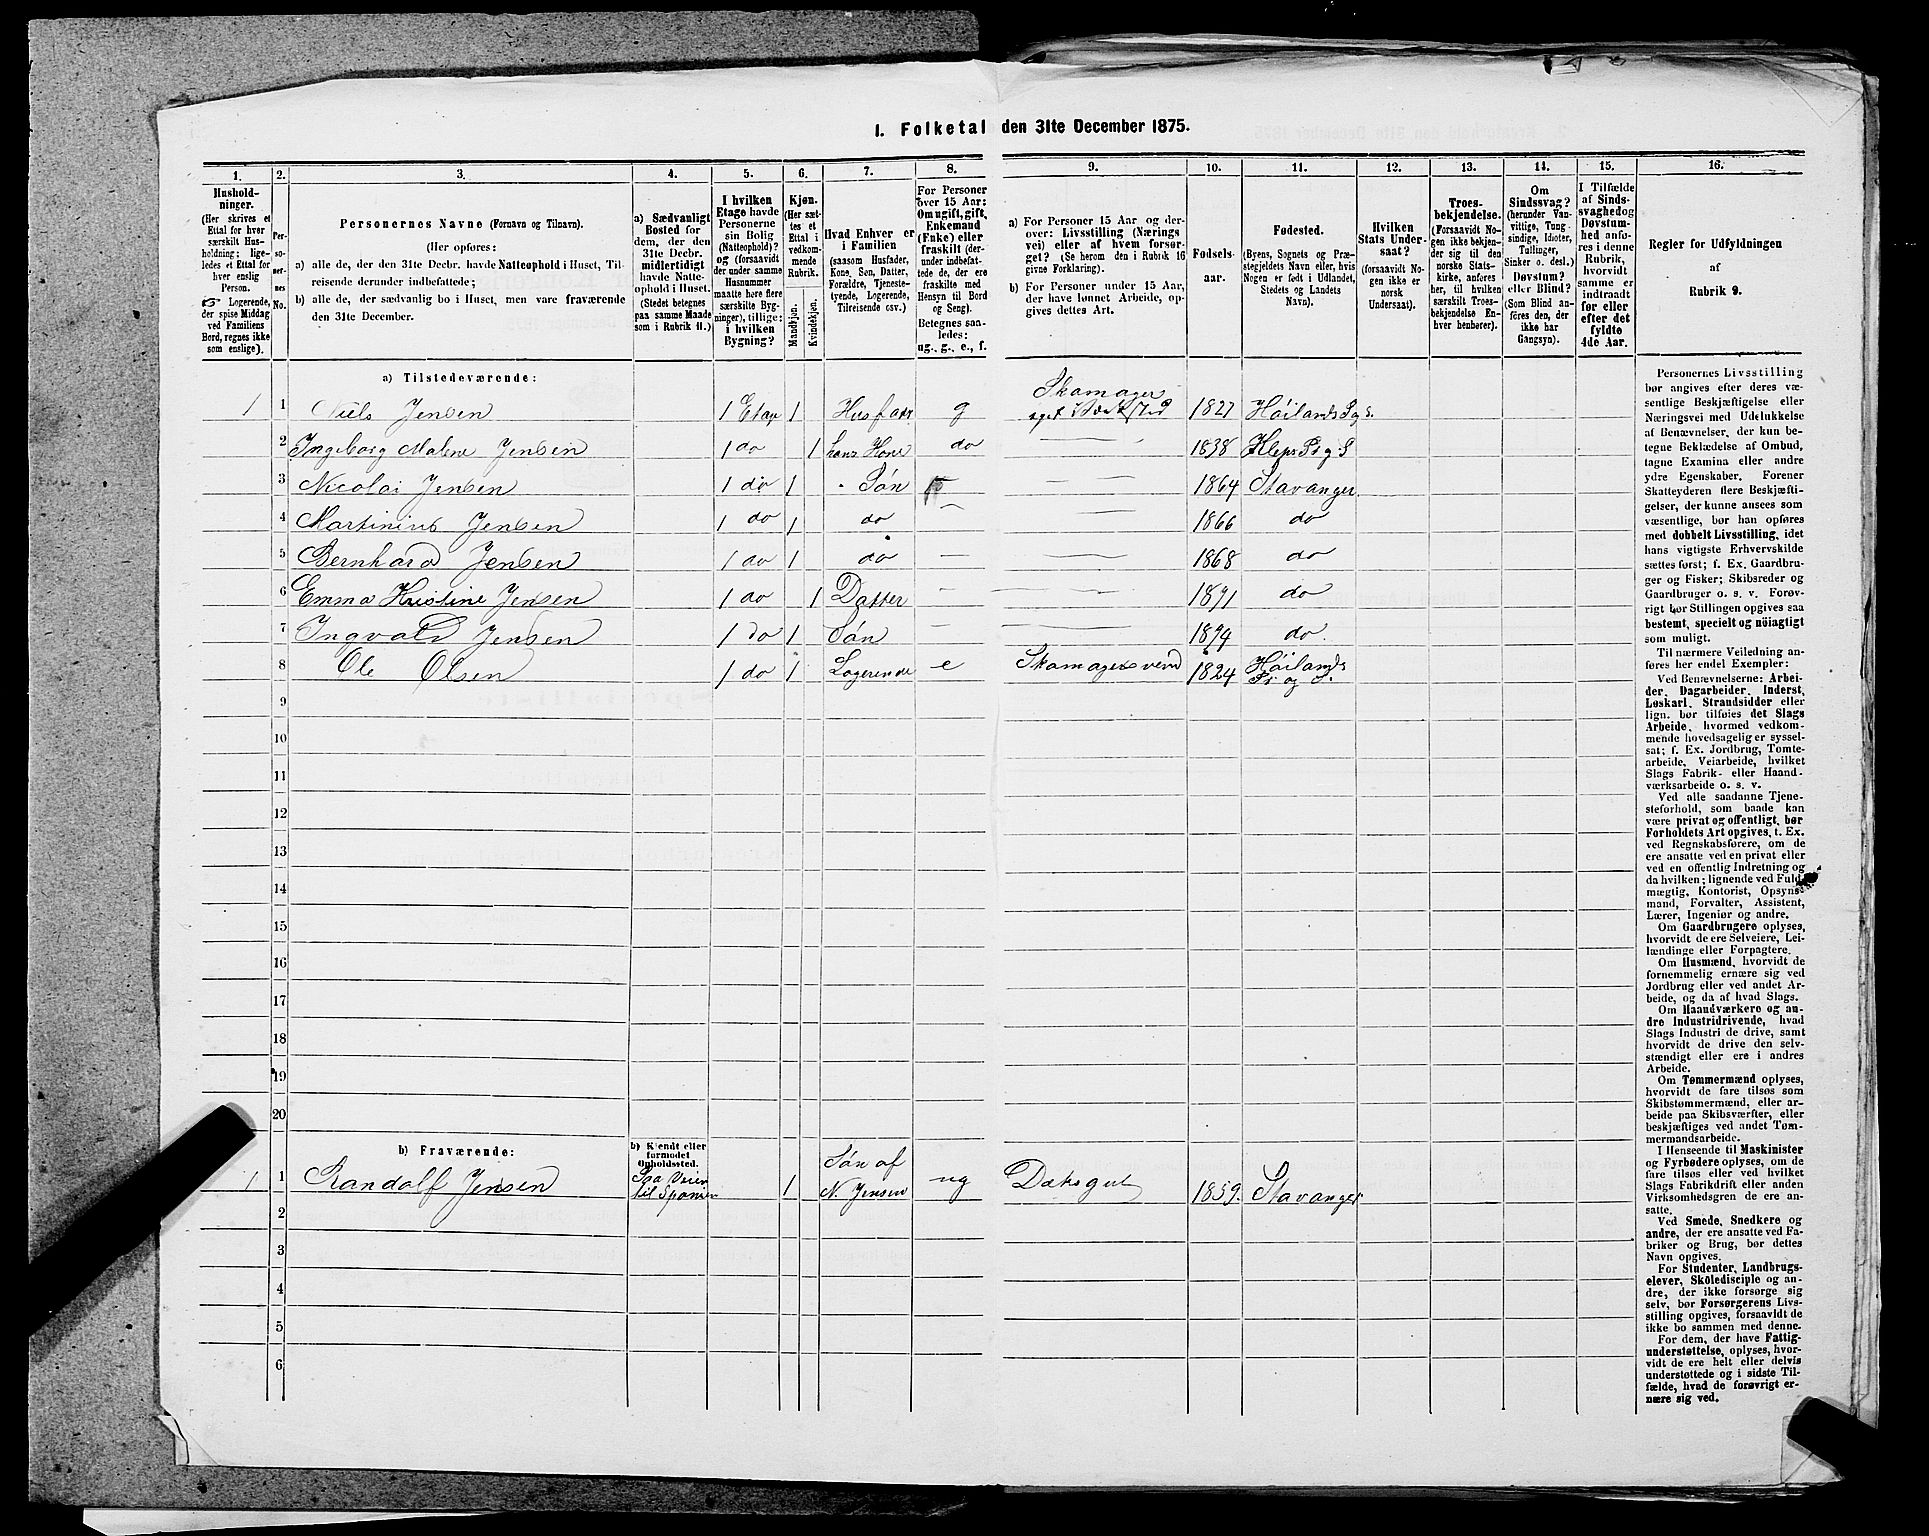 1. Folketal den 31te December 1875.
1. 2. 3. 4. 5. 6. 7. 8. 9. 10. 11. 12. 13. 14. 15. 16.
Hushold-
ninger.
(Her skrives et
Ettal for hver
særskilt Hus-
holdning; lige-
ledes et Ettal for
hver enslig
Person.
☞ Logerende,
der spise Middag
ved Familiens
Bord, regnes ikke
som enslige).
Per-
so-
ner-
nes
No.
Personernes Navne (Fornavn og Tilnavn).
(Her opføres:
a) alle de, der den 31te Decbr. havde Natteophold i Huset, Til-
reisende derunder indbefattede;
b) alle de, der sædvanlig bo i Huset, men vare fraværende
den 31te December.
a) Sædvanligt
Bosted for
dem, der den
31te Decbr.
midlertidigt
havde Natte-
ophold i Huset.
(Stedet betegnes
paa samme Maade
som i Rubrik 11.)
I hvilken
Etage havde
Personerne
sin Bolig
(Natteophold)?
og (forsaavidt
der under samme
Husnummer
maatte høre flere
særskilte Byg-
ninger), tillige:
i hvilken
Bygning?
Kjøn.
(Her sæt-
tes et
Ettal i
vedkom-
mende
Rubrik.
Mandkjøn.
Kvindekjøn.
Hvad Enhver er
i Familien
(saasom Husfader,
Kone, Søn, Datter,
Forældre, Tjeneste-
tyende, Logerende,
Tilreisende osv.)
For Personer
over 15 Aar:
Om ugift, gift,
Enkemand
(Enke) eller
fraskilt (der-
under indbefat-
tede de, der ere
fraskilte med
Hensyn til Bord
og Seng).
Betegnes saa-
ledes:
ug., g., e., f.
a) For Personer 15 Aar og der-
over: Livsstilling (Nærings
vei) eller af hvem forsør-
get? (Se herom den i Rubrik 16
givne Forklaring).
b) For Personer under 15 Aar,
der have lønnet Arbeide, op-
gives dettes Art.
Fødsels-
aar.
Fødested.
(Byens, Sognets og Præ-
stegjeldets Navn eller, hvis
Nogen er født i Udlandet,
Stedets og Landets
Navn).
Hvilken
Stats Under-
saat?
(forsaavidt No-
gen ikke er
norsk
Undersaat).
Troes-
bekjendelse.
(Forsaavidt No-
gen ikke bekjen-
der sig til den
norske Stats-
kirke, anføres
her, til hvilken
særskilt Troes-
bekjendelse En-
hver henhører).
Om
Sindssvag?
(herunder Van-
vittige, Tung-
sindige, Idioter,
Tullinger,
Sinker o. desl.)
Døvstum?
eller Blind?
(Som Blind an-
føres den, der
ikke har
Gangsyn).
I Tilfælde
af Sinds-
svaghed og
Døvstum-
hed anfø-
res i denne
Rubrik,
hvorvidt
samme er
indtraadt
før eller
efter det
fyldte
4de Aar.
Regler for Udfyldningen
af
Rubrik 9.
a) Tilstedeværende:
1 1 Niels Jensen 1 Etag 1 Husfadr g Skomager 1827 Höilands
2 Ingeborg Malene Jensen 1 do 1 hans Kone do 1838 Kleps
3 Nicolai Jensen 1 do 1 Søn 1864 Stavanger
4 Martinius Jensen 1 do 1 do 1866 do
5 Bernhard Jensen 1 do 1 do 1868 do
6 Emma Kristine Jensen 1 do 1 Datter 1871 do
7 Ingvald Jensen 1 do 1 Søn 1874 do.
8 Ole Olsen 1 do 1 Logerende e Skomagersvend 1824 Höilands
Pr og S.
9
10
11
12
13
14
15
16
17
18
19
20
b) Fraværende:
b) Kjendt eller
formodet
Opholdssted.
1 1 Randolf Jensen Paa Veien
til Spanien 1 Søn af
N. Jensen ug Dæksgut 1859. Stavanger
2
3
4
5
6
Personernes Livsstilling
bør angives efter deres væ-
sentlige Beskjæftigelse eller
Næringsvei med Udelukkelse
af Benævnelser, der kun be-
tegne Beklædelse af Ombud,
tagne Examina eller andre
ydre Egenskaber. Forener
Skatteyderen flere Beskjæfti-
gelser, der kunne ansees som
væsentlige, bør han opføres
med dobbelt Livsstilling, idet
hans vigtigste Erhvervskilde
sættes først; f. Ex. Gaardbru-
ger og Fisker; Skibsreder og
Gaardbruger o. s. v. Forøv-
rigt bør Stillingen opgives saa
bestemt, specielt og nöiagtigt
som muligt.
Til nærmere Veiledning an-
føres her endel Exempler:
Ved Benævnelserne: Arbei-
der, Dagarbeider, Inderst,
Løskarl, Strandsidder eller
lign. bør tilføies det Slags
Arbeide, hvormed vedkom-
mende hovedsagelig er syssel-
sat; f. Ex. Jordbrug, Tomte-
arbeide, Veiarbeide, hvilket
Slags Fabrik- eller Haand-
værksarbeide o. s. v.
Ved alle saadanne Tjene-
steforhold, som baade kan
være privat og offentligt, bør
Forholdets Art opgives, t. Ex.
ved Regnskabsførere, om de
ere ansatte ved en privat eller
ved en offentlig Indretning og
da hvilken; lignende ved Fuld-
mægtig, Kontorist, Opsyns-
mand, Forvalter, Assistent,
Lærer, Ingeniør og andre.
Om Gaardbrugere oplyses,
hvorvidt de ere Selveiere, Lei-
lændinge eller Forpagtere.
Om Husmænd, hvorvidt de
fornemmelig ernære sig ved
Jordbrug eller ved andet Ar-
beide, og da af hvad Slags.
Om Haandværkere og an-
dre Industridrivende, hvad
Slags Industri de drive, samt
hvorvidt de drive den selv-
stændigt eller ere i andres
Arbeide.
Om Tømmermænd oplyses,
hvorvidt de fare tilsøs som
Skibstømmermænd, eller ar-
beide paa Skibsværfter, eller
beskjæftiges ved andet Tøm-
mermandsarbeide.
I Henseende til Maskinister
og Fyrbødere oplyses, om de
fare tilsøs eller ved hvilket
Slags Fabrikdrift eller anden
Virksomhedsgren de ere an-
satte.
Ved Smede, Snedkere og
andre, der ere ansatte ved Fa-
briker og Brug, bør dettes
Navn opgives.
For Studenter, Landbrugs-
elever, Skoledisciple og an-
dre, der ikke forsørge sig
selv, bør Forsørgerens Livs-
stilling opgives, forsaavidt de
ikke bo sammen med denne.
For dem, der have Fattig-
understøttelse, oplyses, hvor-
vidt de ere helt eller delvis
understøttede og i sidste Til-
fælde, hvad de forøvrigt er-
nære sig ved.